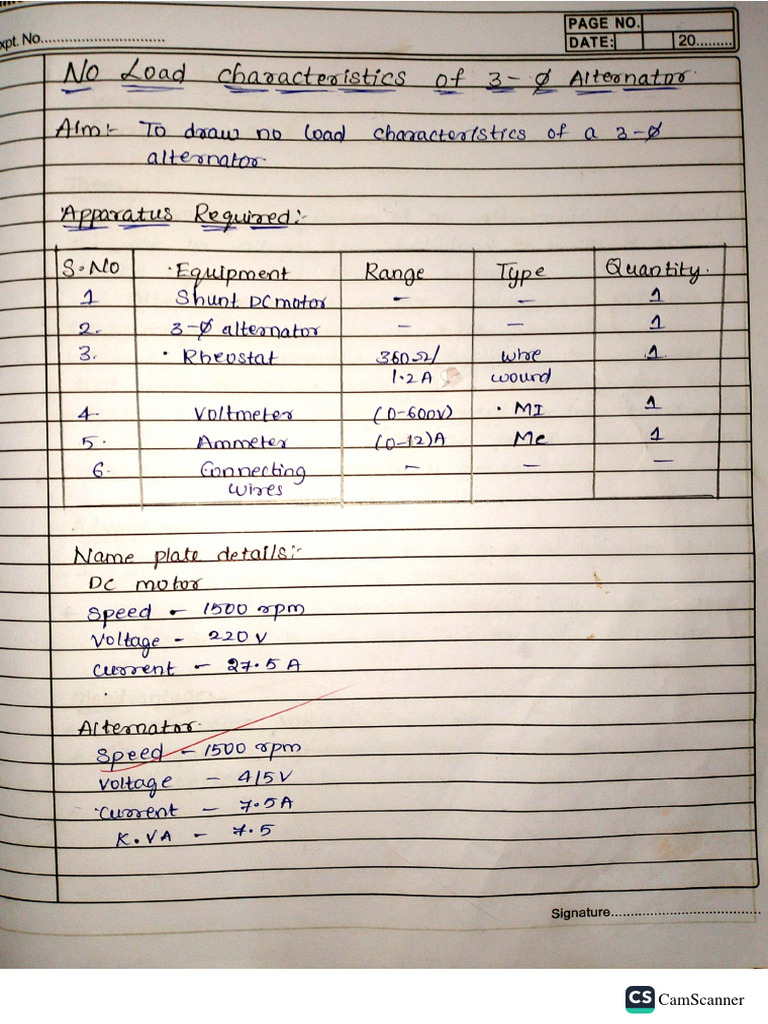 PAGE NO.
xpt. No.............................
DATE: 20.........
No Load characteristics of 3-Ø Alternator.
Aim:- To draw no load characteristics of a 3-Ø
alternator.
Apparatus Required:-
S.No Equipment Range Type Quantity.
1 Shunt DC motor - - 1
2. 3-Ø alternator - - 1
3. Rheostat 360Ω/ wire 1.
1.2A wound
4. Voltmeter (0-600V) MI 1
5. Ammeter (0-12)A Mc 1
6. Connecting - - -
wires
Name plate details:-
DC motor
Speed - 1500 rpm
Voltage - 220 V
current - 27.5 A
Alternator.
Speed - 1500 rpm
Voltage - 415V
current - 7.5A
K.VA - 7.5
Signature......................................
CS CamScanner